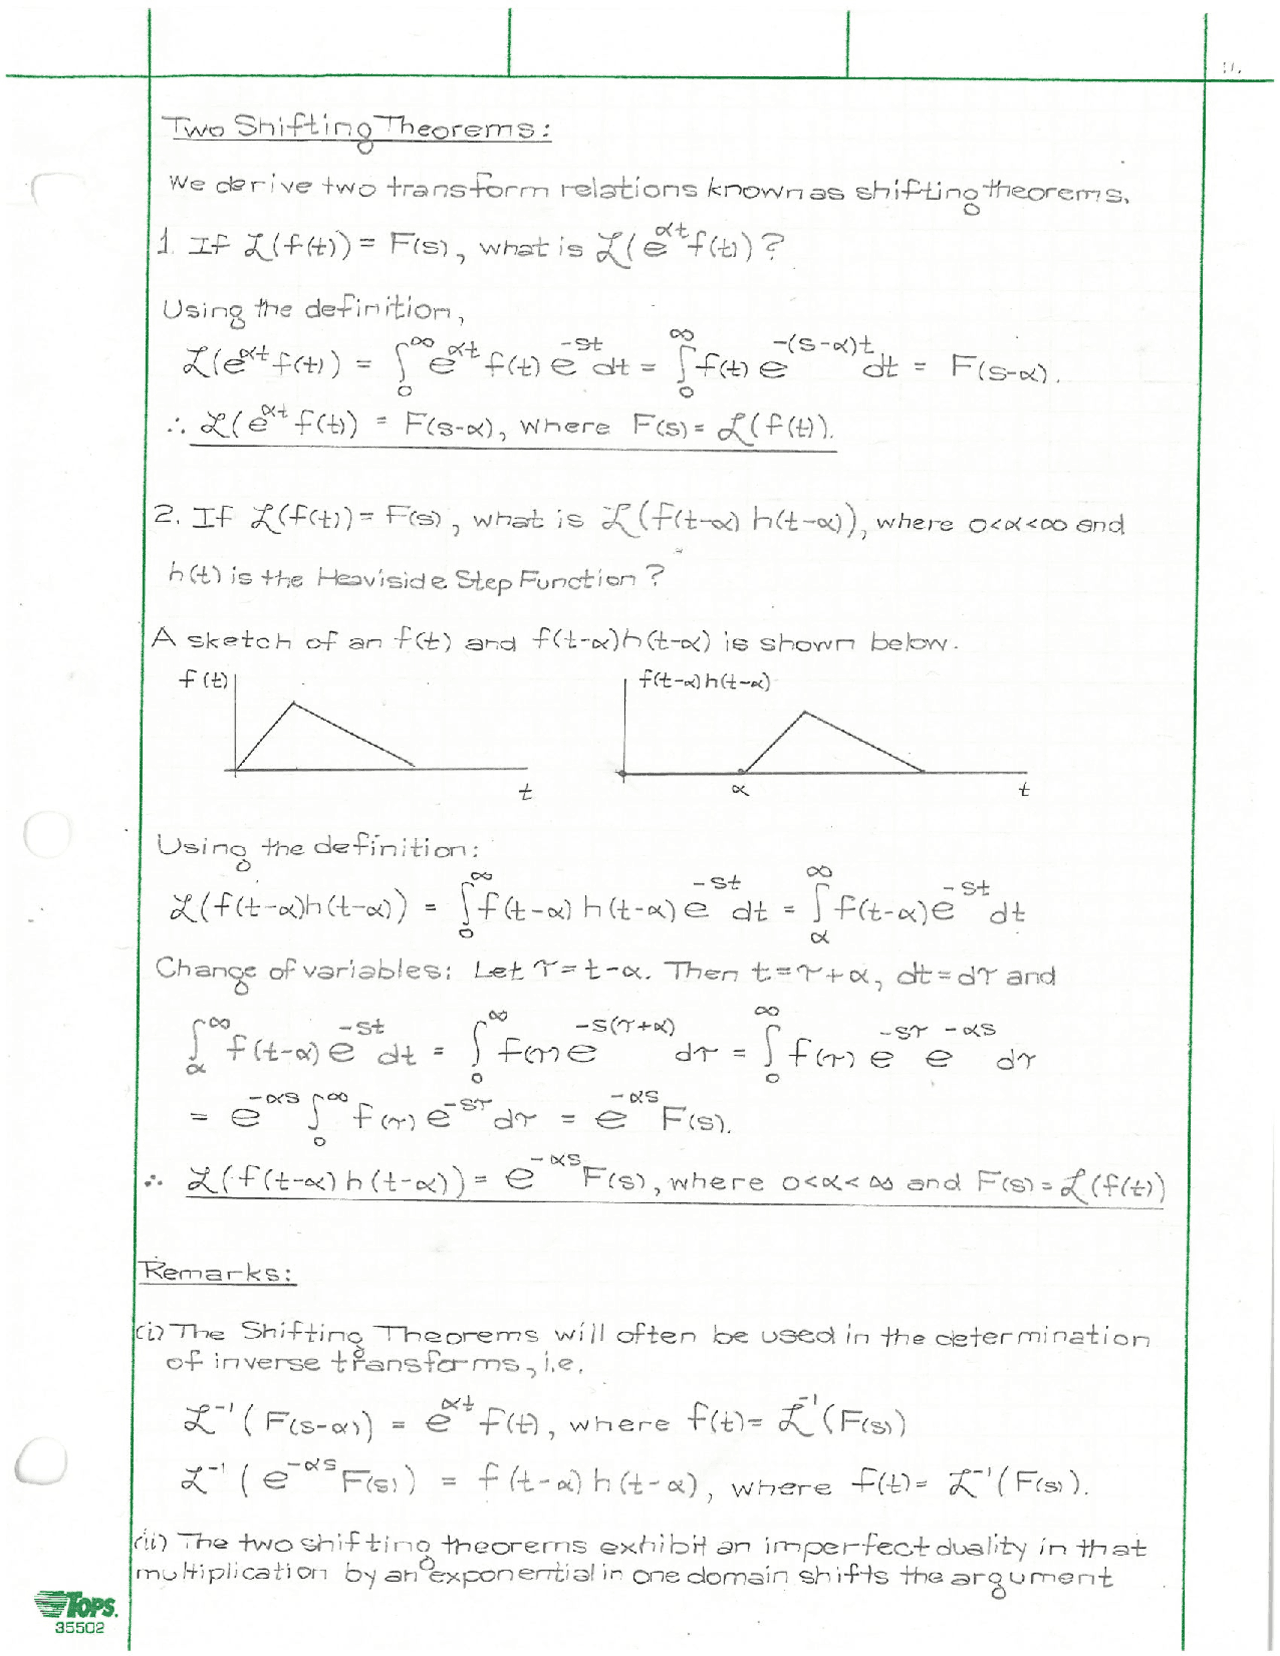 11.
Two Shifting Theorems:
We derive two transform relations known as shifting theorems.
1. If ℒ(f(t)) = F(s), what is ℒ(e^{αt} f(t))?
Using the definition,
ℒ(e^{αt} f(t)) = ∫_0^∞ e^{αt} f(t) e^{-st} dt = ∫_0^∞ f(t) e^{-(s-α)t} dt = F(s-α).
∴ ℒ(e^{αt} f(t)) = F(s-α), where F(s) = ℒ(f(t)).
2. If ℒ(f(t)) = F(s), what is ℒ(f(t-α) h(t-α)), where 0<α<∞ and
h(t) is the Heaviside Step Function?
A sketch of an f(t) and f(t-α)h(t-α) is shown below.
f(t) f(t-α)h(t-α)
t α t
Using the definition:
ℒ(f(t-α)h(t-α)) = ∫_0^∞ f(t-α) h(t-α) e^{-st} dt = ∫_α^∞ f(t-α) e^{-st} dt
Change of variables: Let τ=t-α. Then t=τ+α, dt=dτ and
∫_α^∞ f(t-α) e^{-st} dt = ∫_0^∞ f(τ) e^{-s(τ+α)} dτ = ∫_0^∞ f(τ) e^{-sτ} e^{-αs} dτ
= e^{-αs} ∫_0^∞ f(τ) e^{-sτ} dτ = e^{-αs} F(s).
∴ ℒ(f(t-α) h(t-α)) = e^{-αs} F(s), where 0<α<∞ and F(s) = ℒ(f(t))
Remarks:
(i) The Shifting Theorems will often be used in the determination
of inverse transforms, i.e.
ℒ^{-1}(F(s-α)) = e^{αt} f(t), where f(t) = ℒ^{-1}(F(s))
ℒ^{-1}(e^{-αs} F(s)) = f(t-α) h(t-α), where f(t) = ℒ^{-1}(F(s)).
(ii) The two shifting theorems exhibit an imperfect duality in that
multiplication by an exponential in one domain shifts the argument
TOPS.
35502